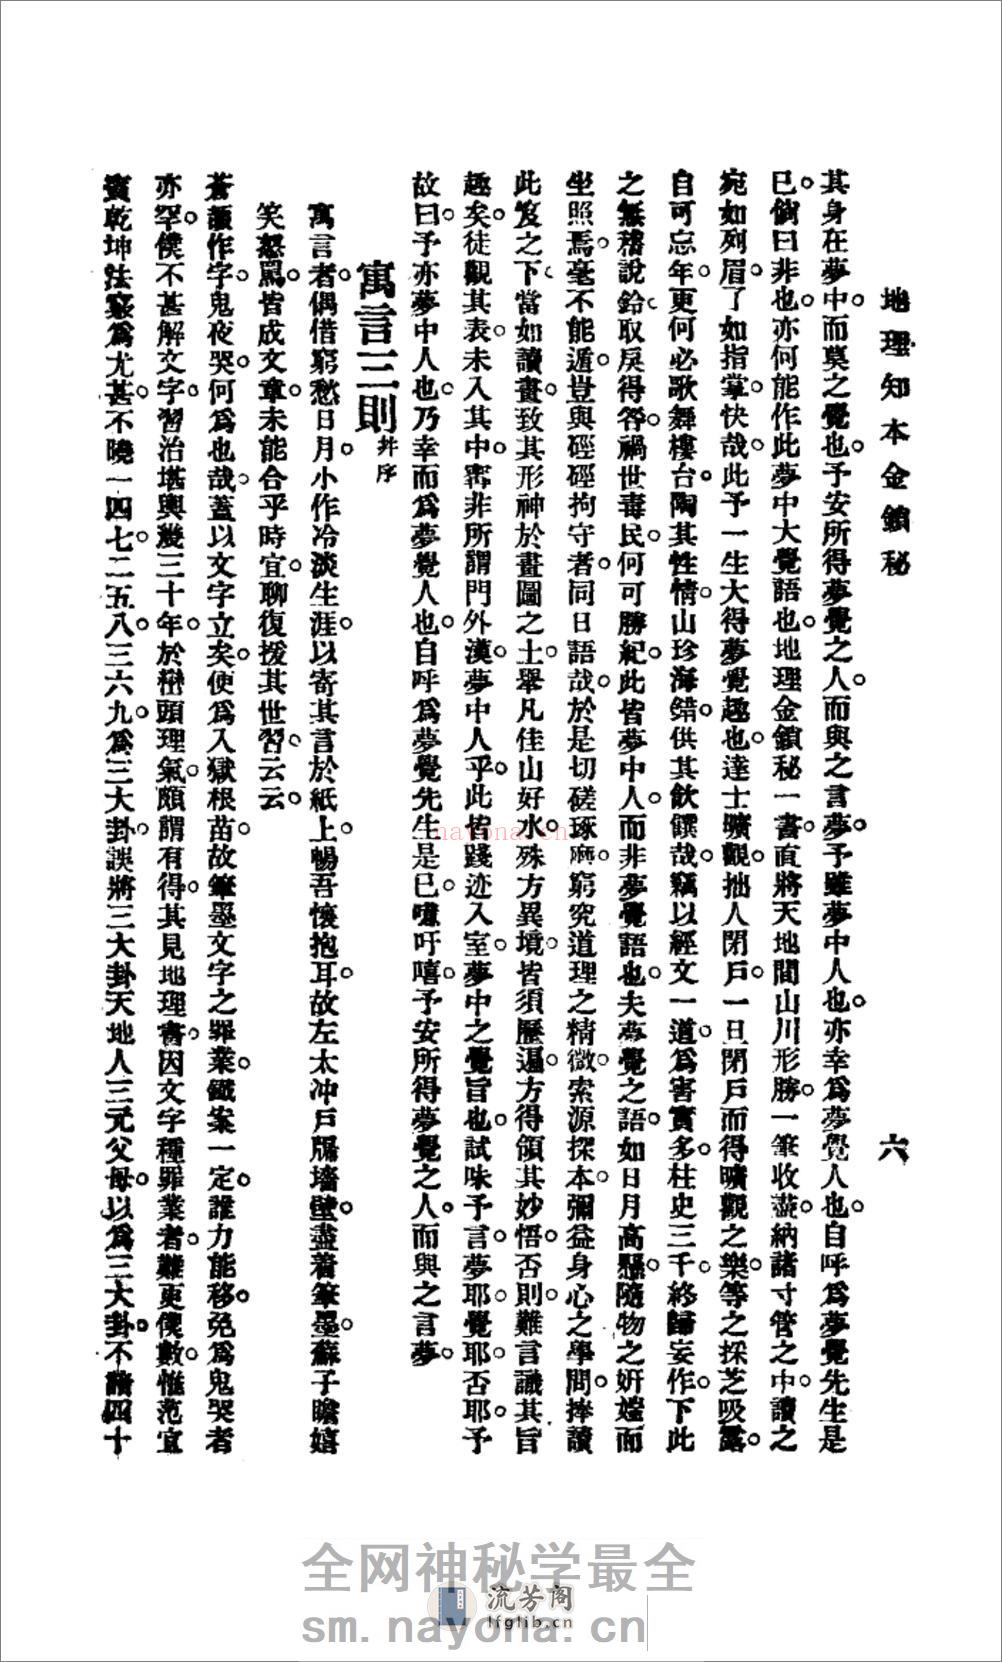 地理知本金鎖秘
六
其身在夢中。而莫之覺也。予安所得夢覺之人。而與之言夢。予雖夢中人也。亦幸爲夢覺人也。自呼爲夢覺先生是
已。倘曰非也。亦何能作此夢中大覺語也。地理金鎖秘一書。直將天地間山川形勝。一筆收盡。納諸寸管之中。讀之
宛如列眉。了如指掌。快哉。此予一生大得夢覺趣也。達士曠觀。拙人閉戶。一旦閉戶而得曠觀之樂。等之採芝吸露。
自可忘年。更何必歌舞樓台。陶其性情。山珍海錯。供其飲饌哉。竊以經文一道。爲害實多。柱史三千。終歸妄作。下此
之無稽說鈴。取戾得咎。禍世毒民。何可勝紀。此皆夢中人。而非夢覺語也。夫夢覺之語。如日月高懸。隨物之妍媸而
坐照焉。毫不能遁。豈與硜硜拘守者。同日語哉。於是切磋琢磨。窮究道理之精微。索源探本。彌益身心之學問。捧讀
此笈之下。當如讀畫。致其形神於畫圖之上。舉凡佳山好水。殊方異境。皆須歷遍。方得領其妙悟。否則難言識其旨
趣矣。徒觀其表。未入其中。寗非所謂門外漢。夢中人乎。此皆踐迹入室。夢中之覺旨也。試味予言。夢耶。覺耶。否耶。予
故曰。予亦夢中人也。乃幸而爲夢覺人也。自呼爲夢覺先生是已。噫吁嘻。予安所得夢覺之人。而與之言夢。
寓言三則 幷序
寓言者。偶借窮愁日月。小作冷淡生涯。以寄其言於紙上。暢吾懷抱耳。故左太冲戶牖墻壁。盡着筆墨。蘇子瞻嬉
笑怒罵。皆成文章。未能合乎時宜。聊復援其世習云云。
蒼頡作字。鬼夜哭。何爲也哉。蓋以文字立矣。便爲入獄根苗。故筆墨文字之罪業。鐵案一定。誰力能移。免爲鬼哭者
亦罕。僕不甚解文字。習治堪輿幾三十年。於巒頭理氣。頗謂有得。其見地理書。因文字種罪業者。難更僕數。惟范宜
賓乾坤法竅爲尤甚。不曉一四七。二五八。三六九。爲三大卦。誤將三大卦天地人三元父母。以爲三大卦。不諳四十
nayona.cn
全网神秘学最全
流芳阁
lfglib.cn
sm.nayona.cn